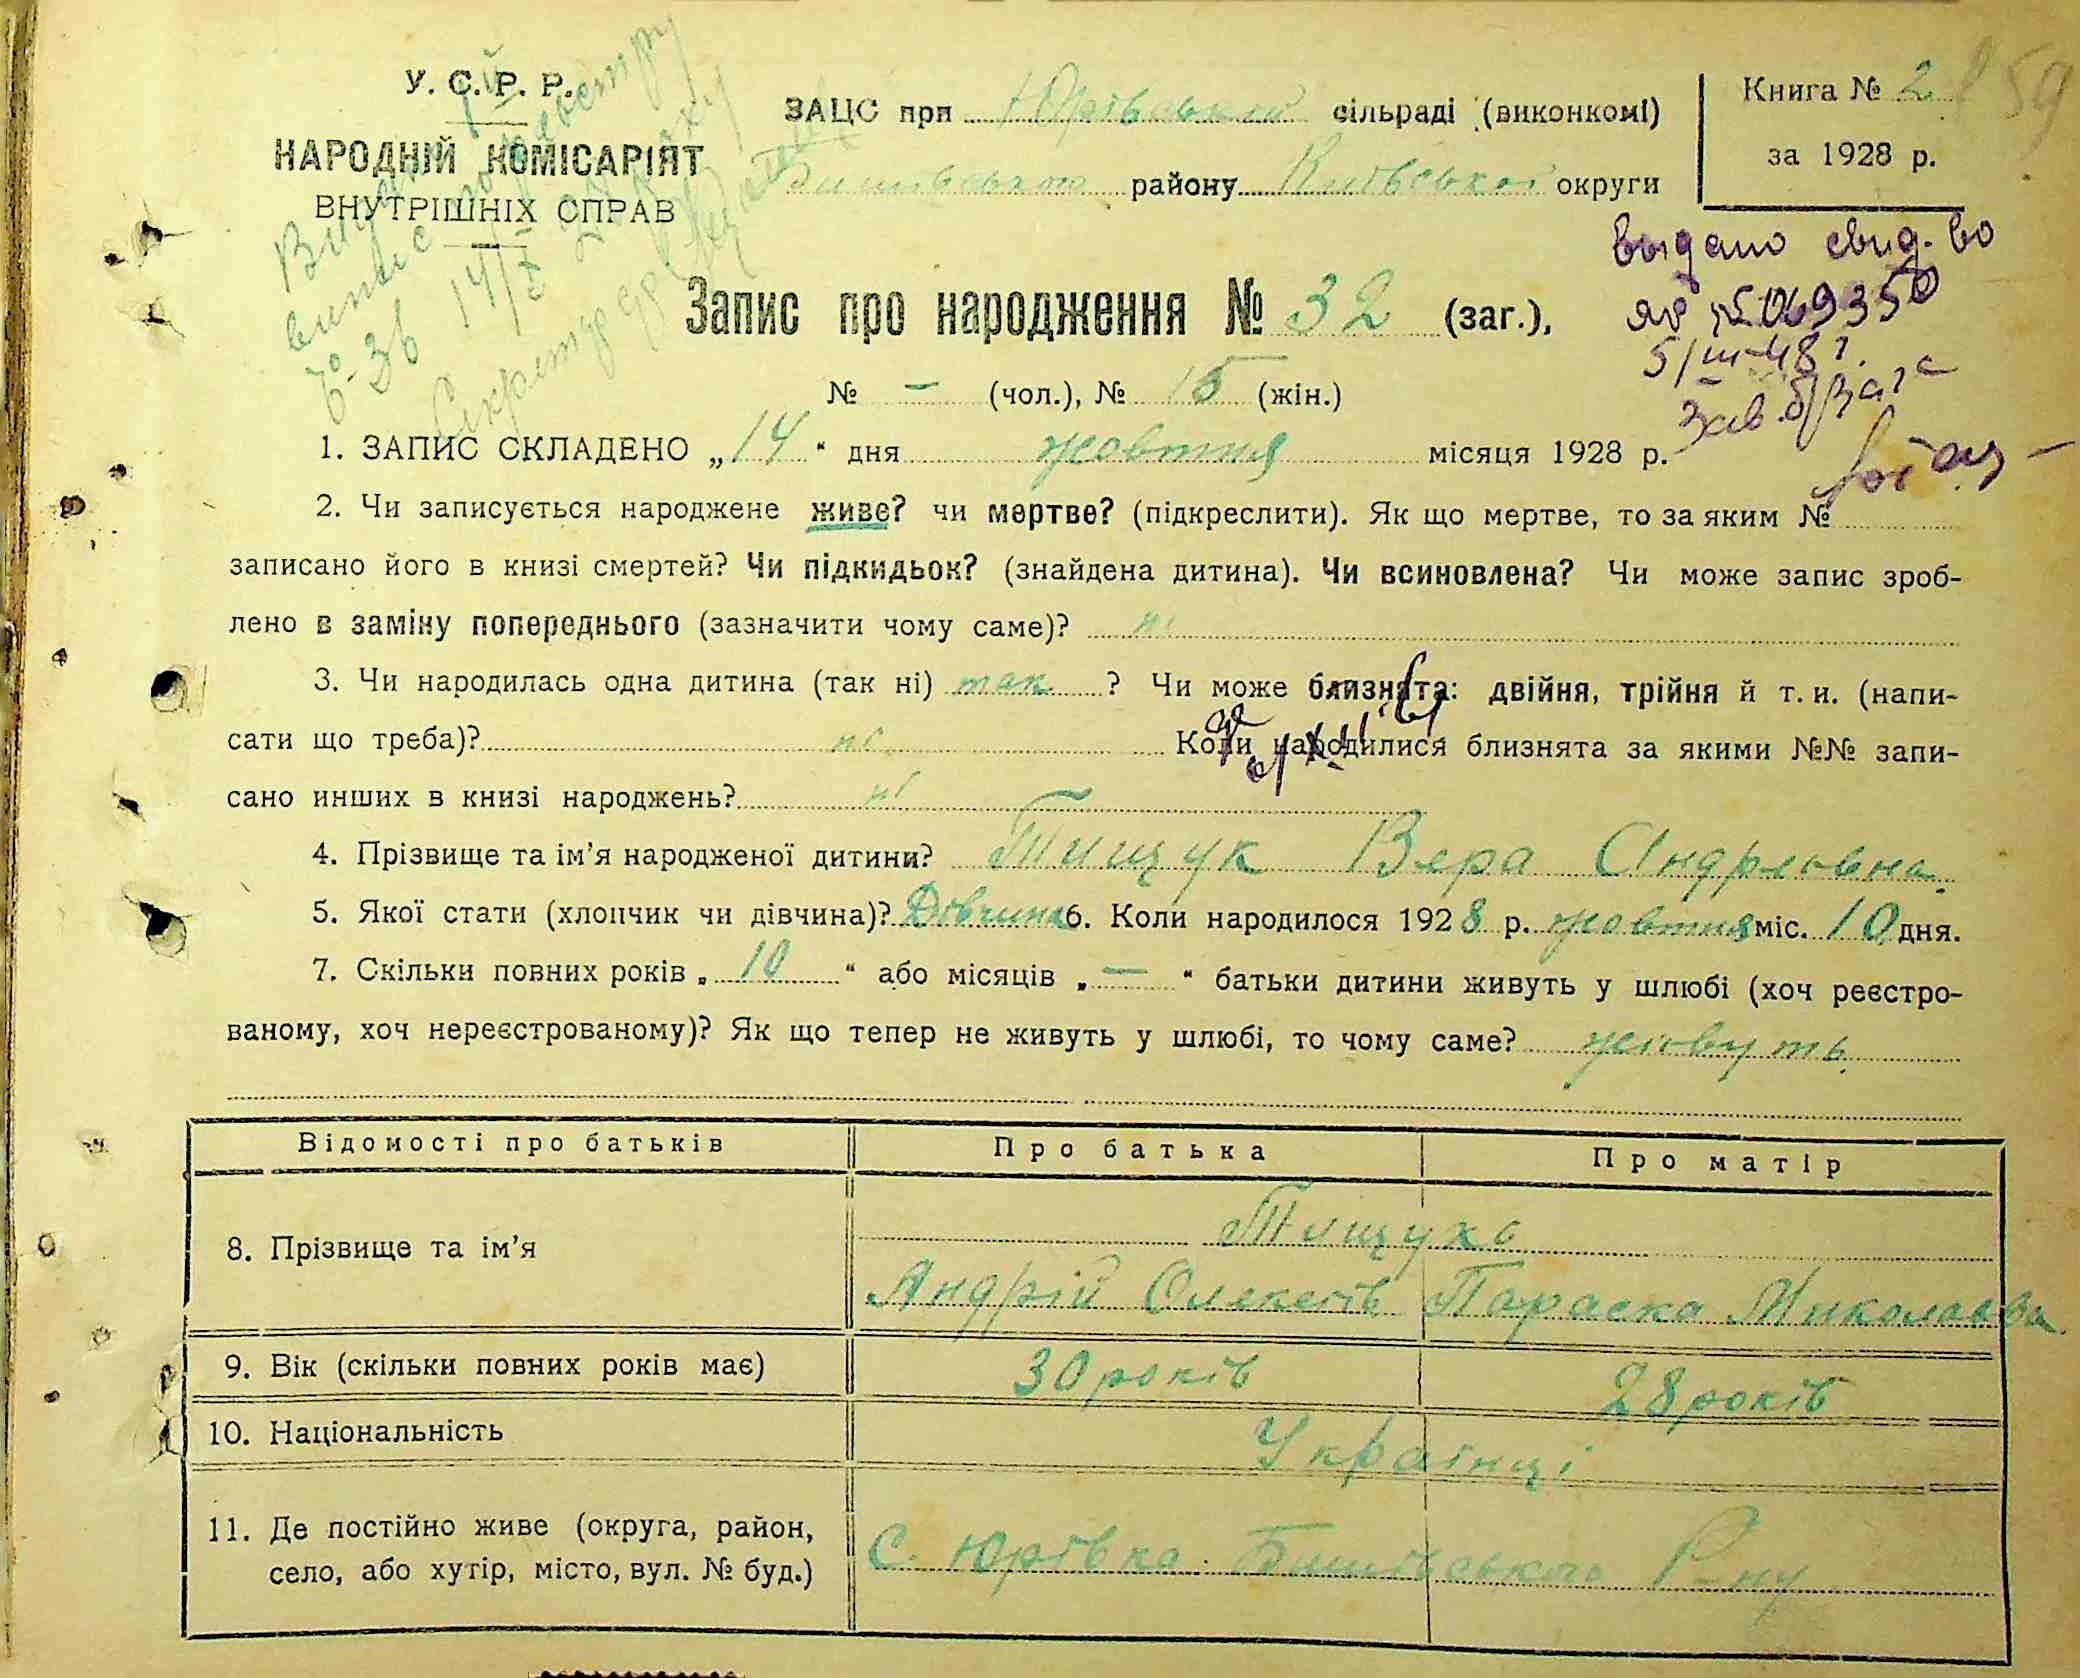 У. С. Р. Р.
НАРОДНІЙ КОМІСАРІЯТ
ВНУТРІШНІХ СПРАВ
ЗАЦС при Юрівській сільраді (виконкомі)
Бишівського району Київської округи
Книга № 2
за 1928 р.
59
выдано свид-во
№ 069350
5/III-48 г.
Зав. б/загс
Запис про народження № 32 (заг.),
№ — (чол.), № 15 (жін.)
1. ЗАПИС СКЛАДЕНО „14" дня жовтня місяця 1928 р.
2. Чи записується народжене живе? чи мертве? (підкреслити). Як що мертве, то за яким №
записано його в книзі смертей? Чи підкидьок? (знайдена дитина). Чи всиновлена? Чи може запис зроб-
лено в заміну попереднього (зазначити чому саме)? ні
3. Чи народилась одна дитина (так ні) так ? Чи може близнята: двійня, трійня й т. и. (напи-
сати що треба)? ні Коли народилися близнята за якими №№ запи-
сано инших в книзі народжень? ні
4. Прізвище та ім'я народженої дитини? Тищук Вера Андреовна
5. Якої стати (хлопчик чи дівчина)? Дівчина 6. Коли народилося 1928 р. жовтня міс. 10 дня.
7. Скільки повних років „10" або місяців „—" батьки дитини живуть у шлюбі (хоч реєстро-
ваному, хоч нереєстрованому)? Як що тепер не живуть у шлюбі, то чому саме? живуть
Відомості про батьків Про батька Про матір
8. Прізвище та ім'я Тищукы
Андрій Олексіїв Параска Миколаєва
9. Вік (скільки повних років має) 30 років 28 років
10. Національність Українці
11. Де постійно живе (округа, район,
село, або хутір, місто, вул. № буд.) с. Юрівка Бишівського Р-ну